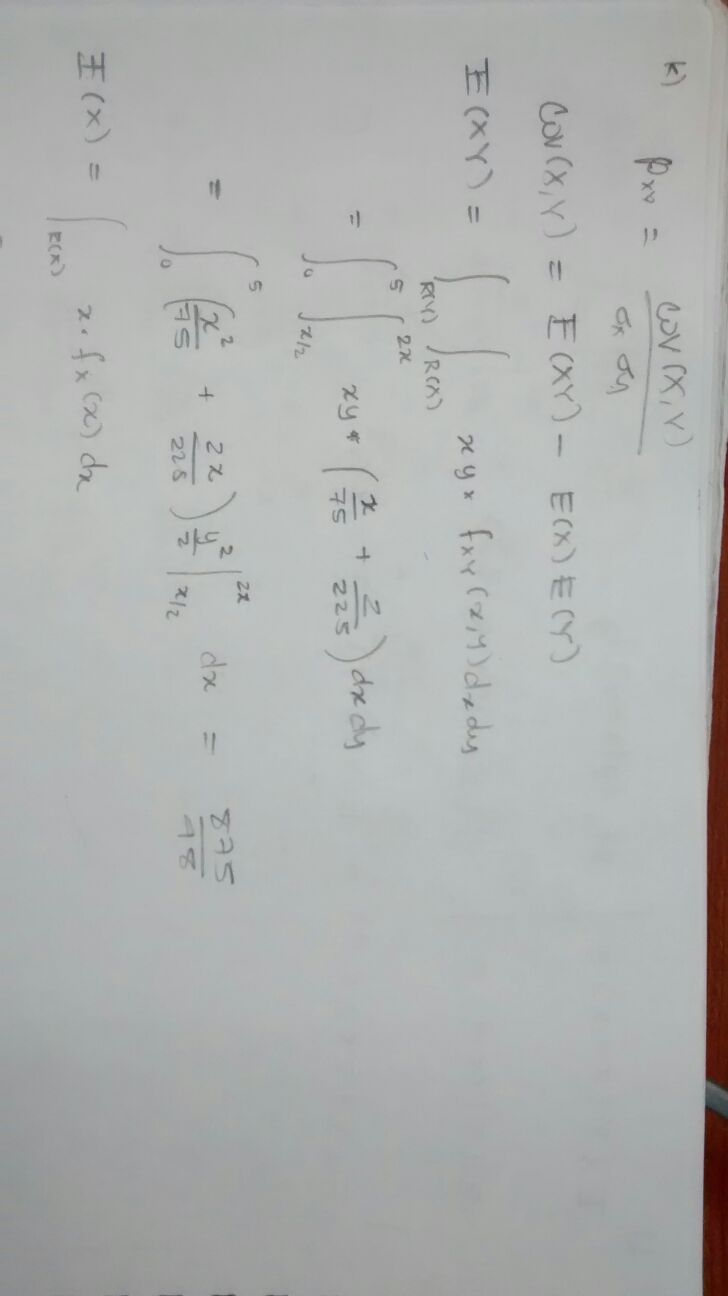 k) ρ_XY = COV(X,Y) / σx σy
COV(X,Y) = E(XY) - E(X) E(Y)
E(XY) = ∫_R(Y) ∫_R(X) xy * f_XY(x,y) dx dy
= ∫_0^5 ∫_{x/2}^{2x} xy * (x/75 + 2/225) dx dy
= ∫_0^5 (x²/75 + 2x/225) y²/2 |_{x/2}^{2x} dx = 875/48
E(X) = ∫_R(X) x · f_X(x) dx